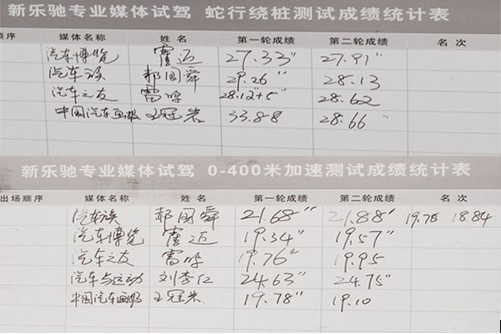 新乐驰专业媒体试驾 蛇行绕桩测试成绩统计表
顺序 媒体名称 姓名 第一轮成绩 第二轮成绩 名次
汽车博览 雷迈 27.33" 27.91"
汽车族 郝国舜 29.26" 28.13
汽车之友 雷鸣 28.12"+5" 28.62
中国汽车画报 王冠 33.88 28.66
新乐驰专业媒体试驾 0-400米加速测试成绩统计表
出场顺序 媒体名称 姓名 第一轮成绩 第二轮成绩 名次
汽车族 郝国舜 21.68" 21.88" 19.78 18.84
汽车博览 雷迈 19.34" 19.57"
汽车之友 雷鸣 19.76" 19.95
汽车与运动 刘李仁 24.63" 24.75"
中国汽车画报 王冠 19.78" 19.10